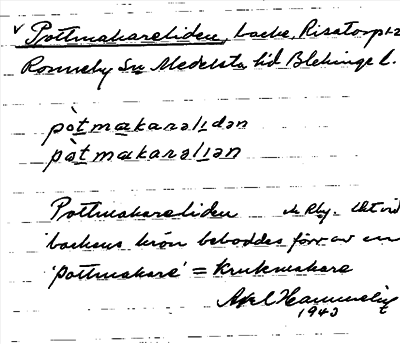 v Pottmakareliden, backe, Risatorp 1:2
Ronneby sn Medelsta hd Blekinge l.
pòtmakaralıdan
pòtmakaralıan
Pottmakareliden i Rby. Ett vid
backens krön beboddes förr av en
'pottmakare' = krukmakare
Axel Hammelig
1943